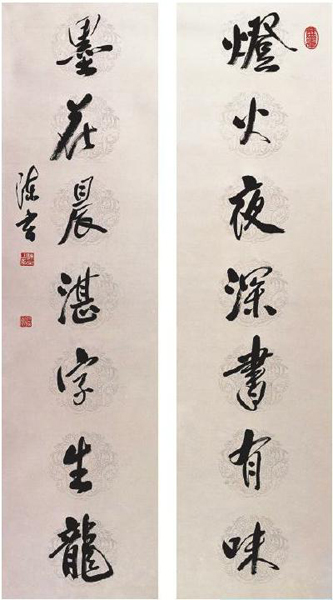 燈火夜深書有味
墨花晨湛字生龍